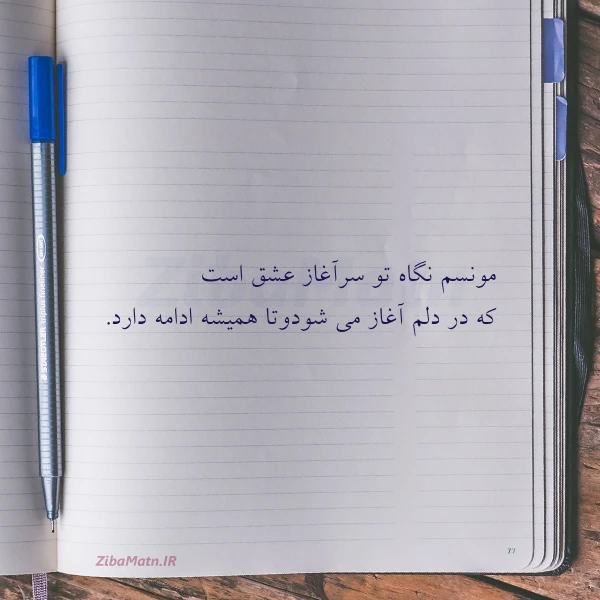 مونسم نگاه تو سرآغاز عشق است
که در دلم آغاز می شودوتا همیشه ادامه دارد.
77
ZibaMatn.IR